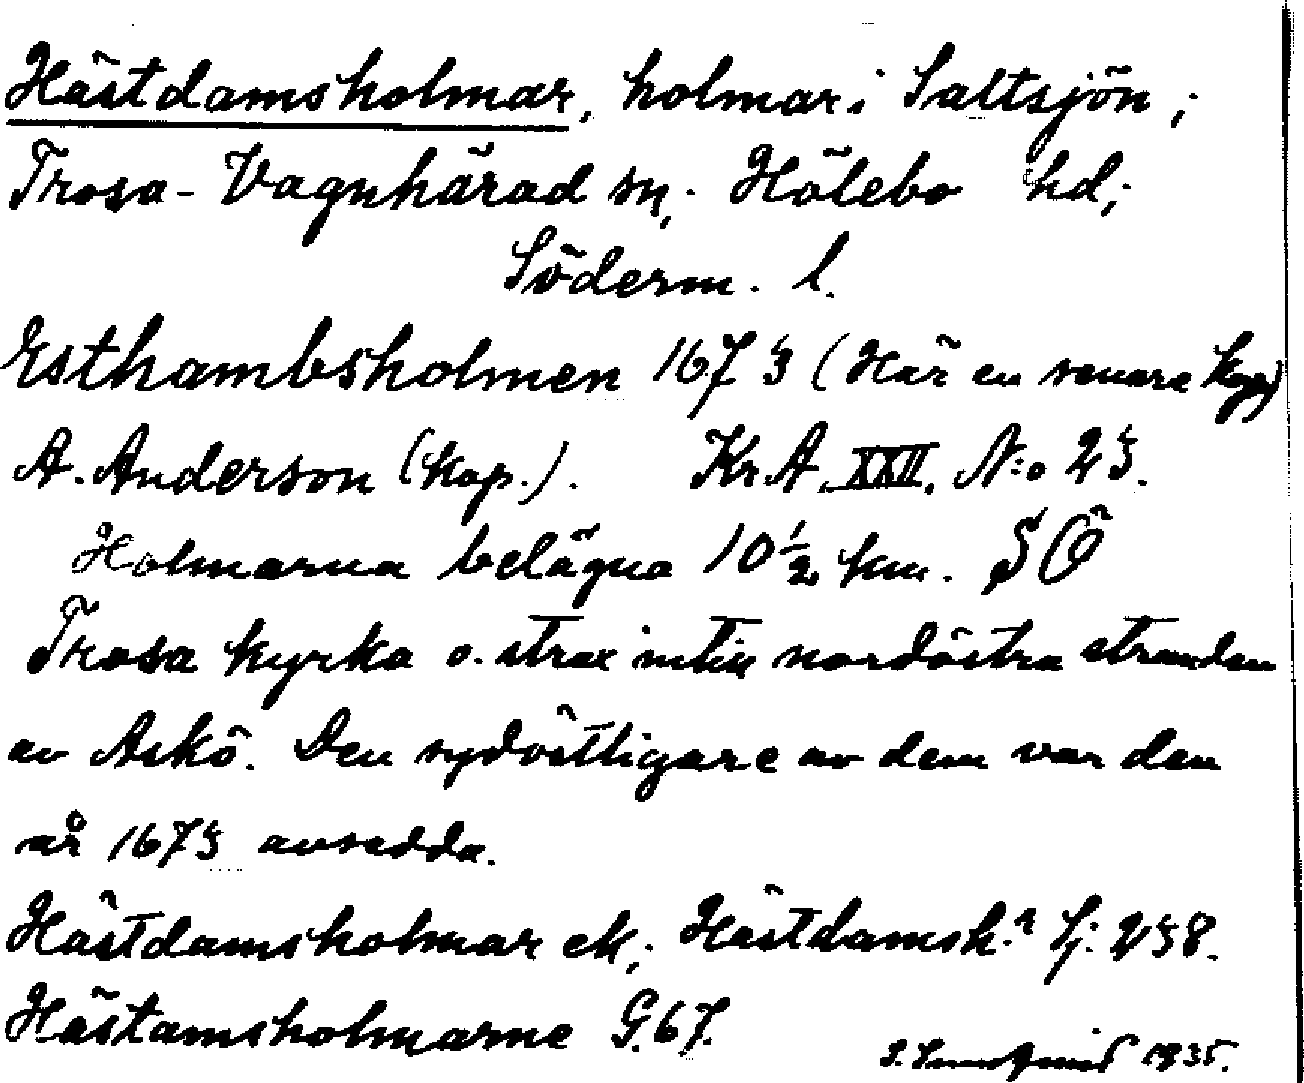 Hästdamsholmar, holmar i Saltsjön;
Trosa-Vagnhärad sn; Hölebo hd;
Söderm. l.
Esthambsholmen 1675 (Här en senare kopia)
A. Anderson (kop.). Kr.A. XXII. N:o 25.
Holmarna belägna 10½ km. SÖ
Trosa kyrka o. strax intill nordöstra stranden
av Askö. Den sydöstligare av dem var den
år 1675 avsedda.
Hästdamsholmar ek; Hästdamsh.ⁿ Sj. 258.
Hästamsholmarne G.67.
1935.